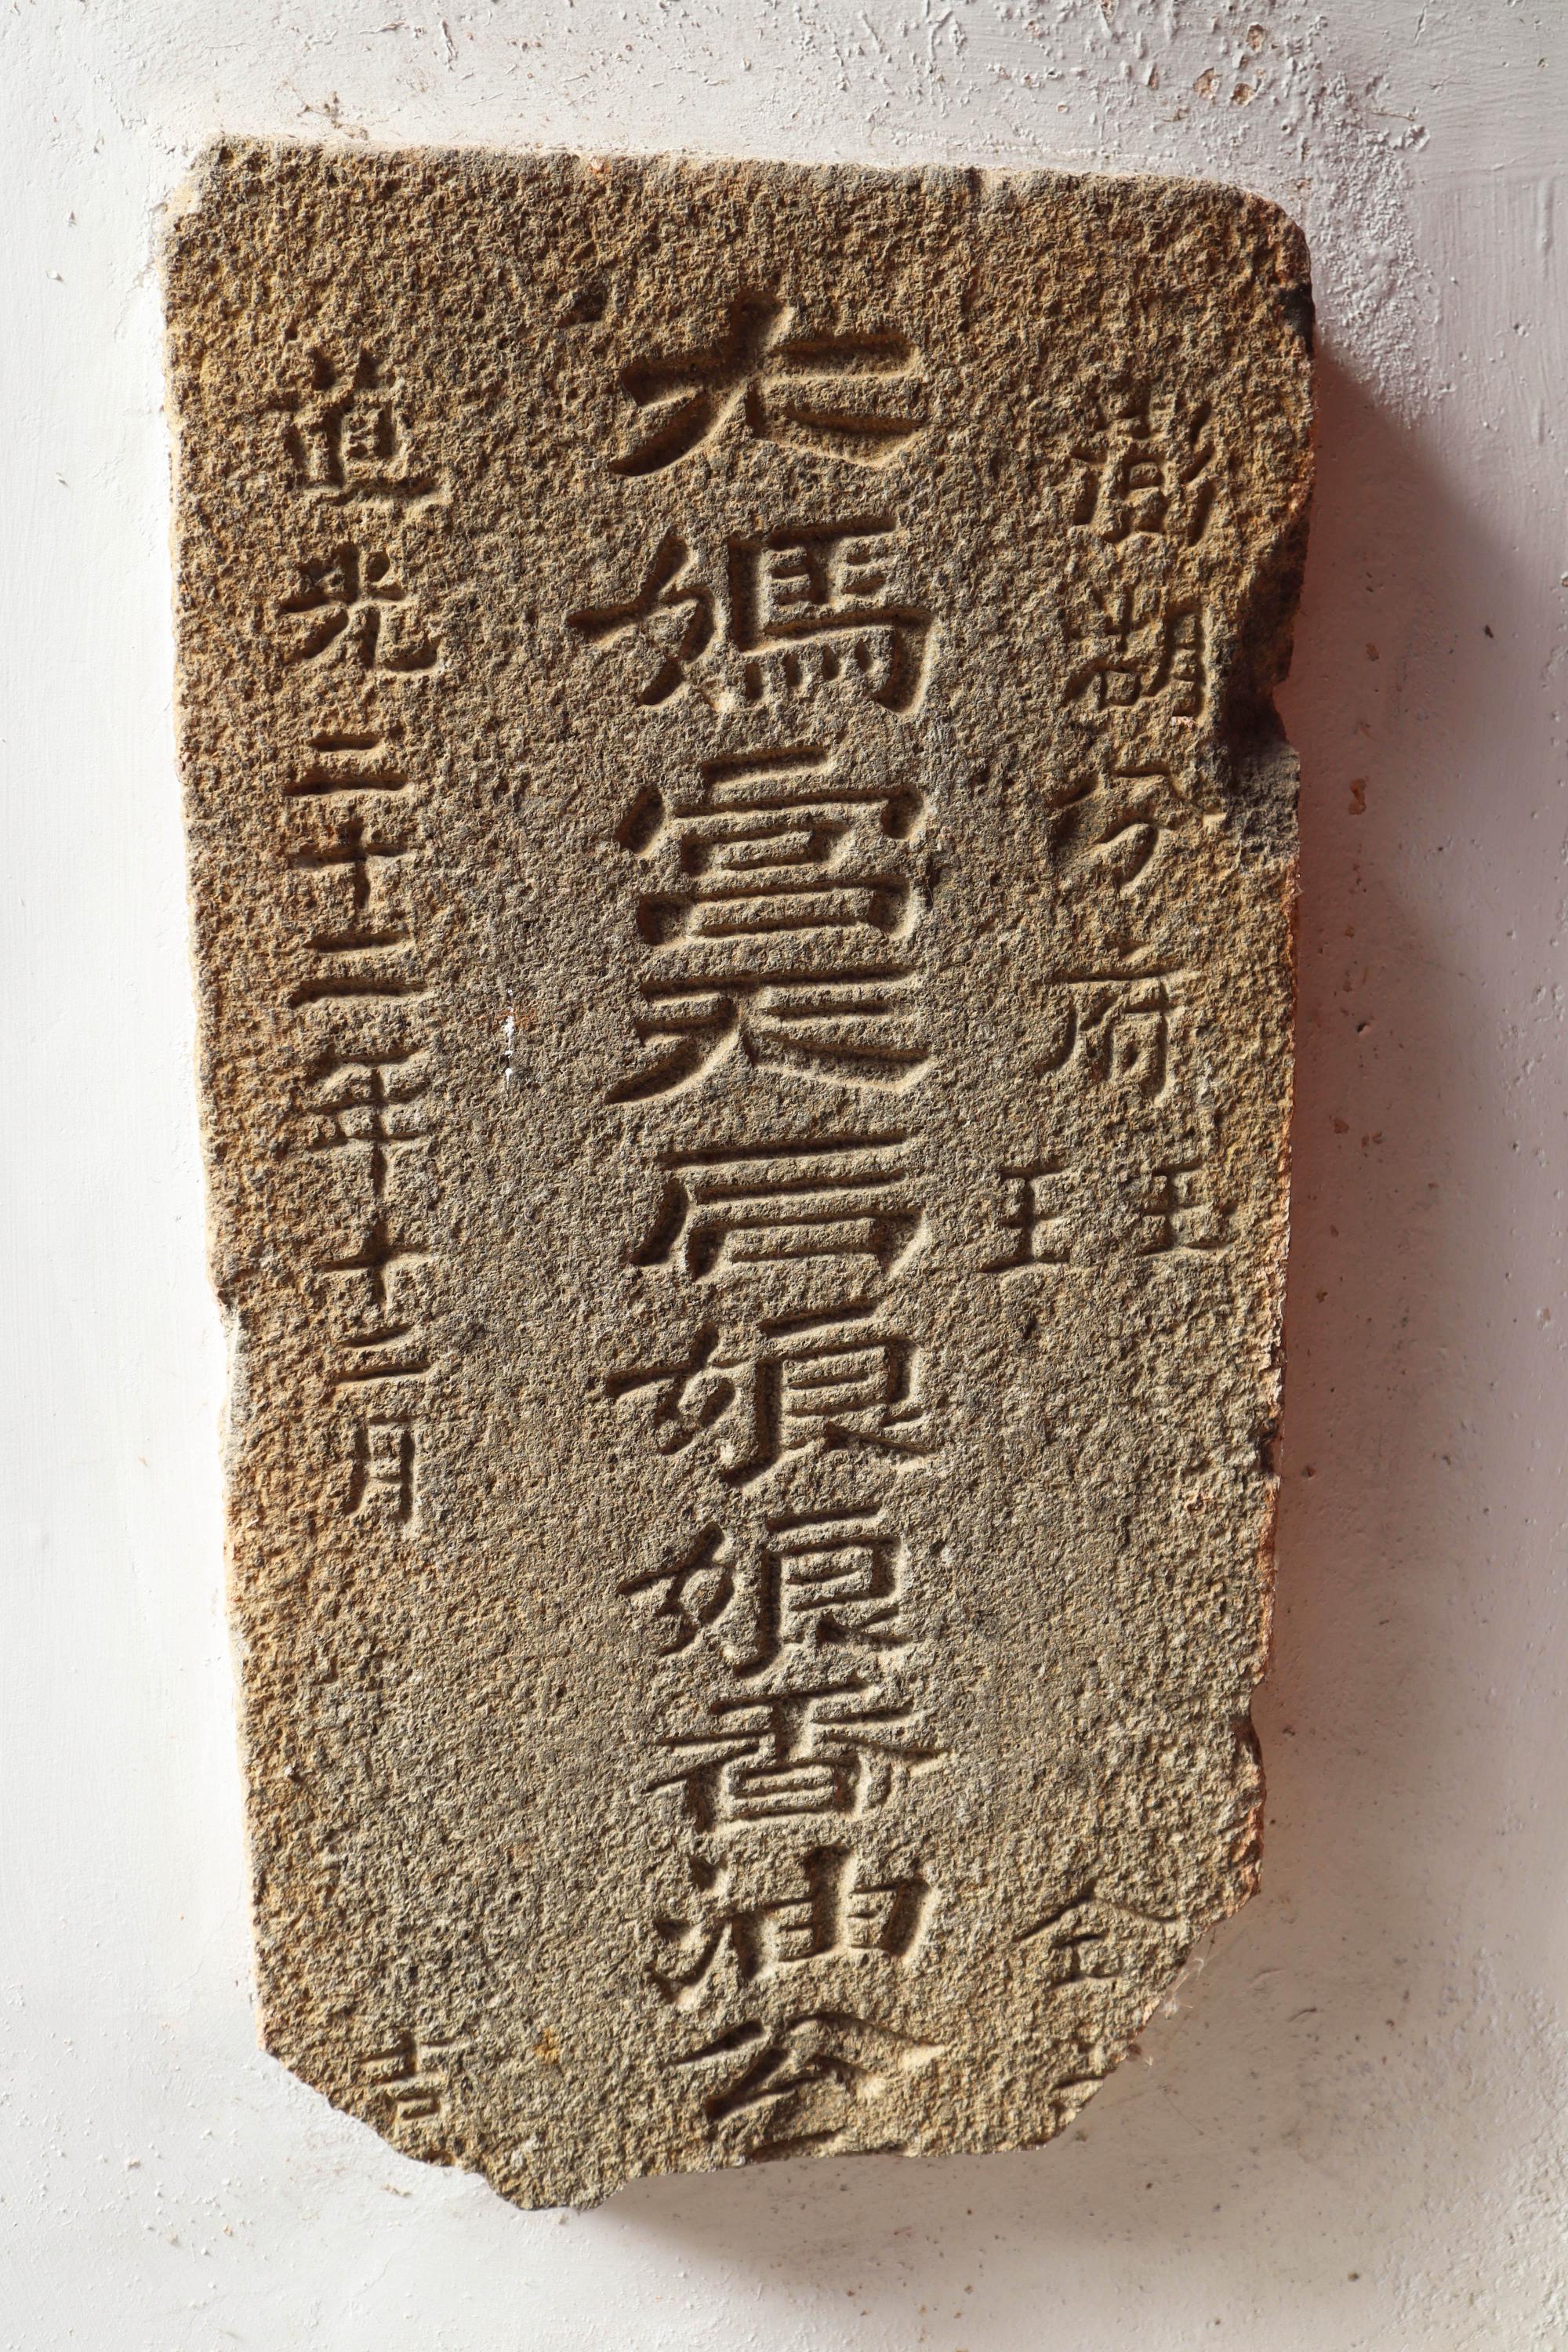 澎湖分府王王仝
大媽宮天后娘娘香油公
道光二十二年十二月吉